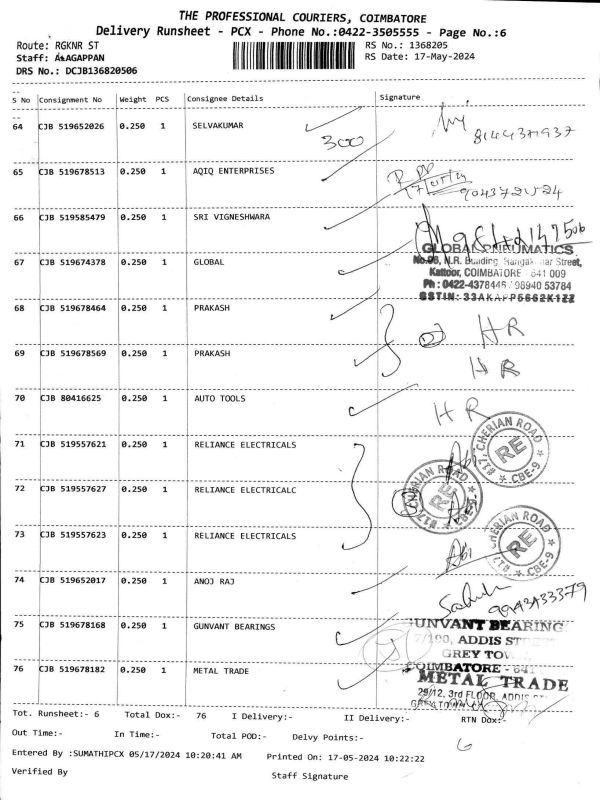 THE PROFESSIONAL COURIERS, COIMBATORE
Delivery Runsheet - PCX - Phone No.:0422-3505555 - Page No.:6
Route: RGKNR ST
RS No.: 1368205
Staff: ALAGAPPAN
RS Date: 17-May-2024
DRS No.: DCJB136820506
S No Consignment No Weight PCS Consignee Details Signature
64 CJB 519652026 0.250 1 SELVAKUMAR
300
65 CJB 519678513 0.250 1 AQIQ ENTERPRISES
66 CJB 519585479 0.250 1 SRI VIGNESHWARA
67 CJB 519674378 0.250 1 GLOBAL
GLOBAL PNEUMATICS
No.96, N.R. Building, Street,
Kattoor, COIMBATORE - 641 009
Ph : 0422-4378446 / 98940 53784
GSTIN: 33AKAPP5662K1ZZ
68 CJB 519678464 0.250 1 PRAKASH
HR
69 CJB 519678569 0.250 1 PRAKASH
HR
70 CJB 80416625 0.250 1 AUTO TOOLS
HR
71 CJB 519557621 0.250 1 RELIANCE ELECTRICALS
Abi
817, CHERIAN ROAD
RE
CBE-9
72 CJB 519557627 0.250 1 RELIANCE ELECTRICALC
817, CHERIAN ROAD
RE
73 CJB 519557623 0.250 1 RELIANCE ELECTRICALS
Abi
817, CHERIAN ROAD
RE
CBE-9
74 CJB 519652017 0.250 1 ANOJ RAJ
75 CJB 519678168 0.250 1 GUNVANT BEARINGS
GUNVANT BEARING
7/100, ADDIS
GREY TOWN
COIMBATORE - 641
76 CJB 519678182 0.250 1 METAL TRADE
METAL TRADE
29/12, 3rd FLOOR, ADDIS
Tot. Runsheet:- 6 Total Dox:- 76 I Delivery:- II Delivery:- RTN Dox:-
6
Out Time:- In Time:- Total POD:- Delvy Points:-
Entered By :SUMATHIPCX 05/17/2024 10:20:41 AM Printed On: 17-05-2024 10:22:22
Verified By Staff Signature